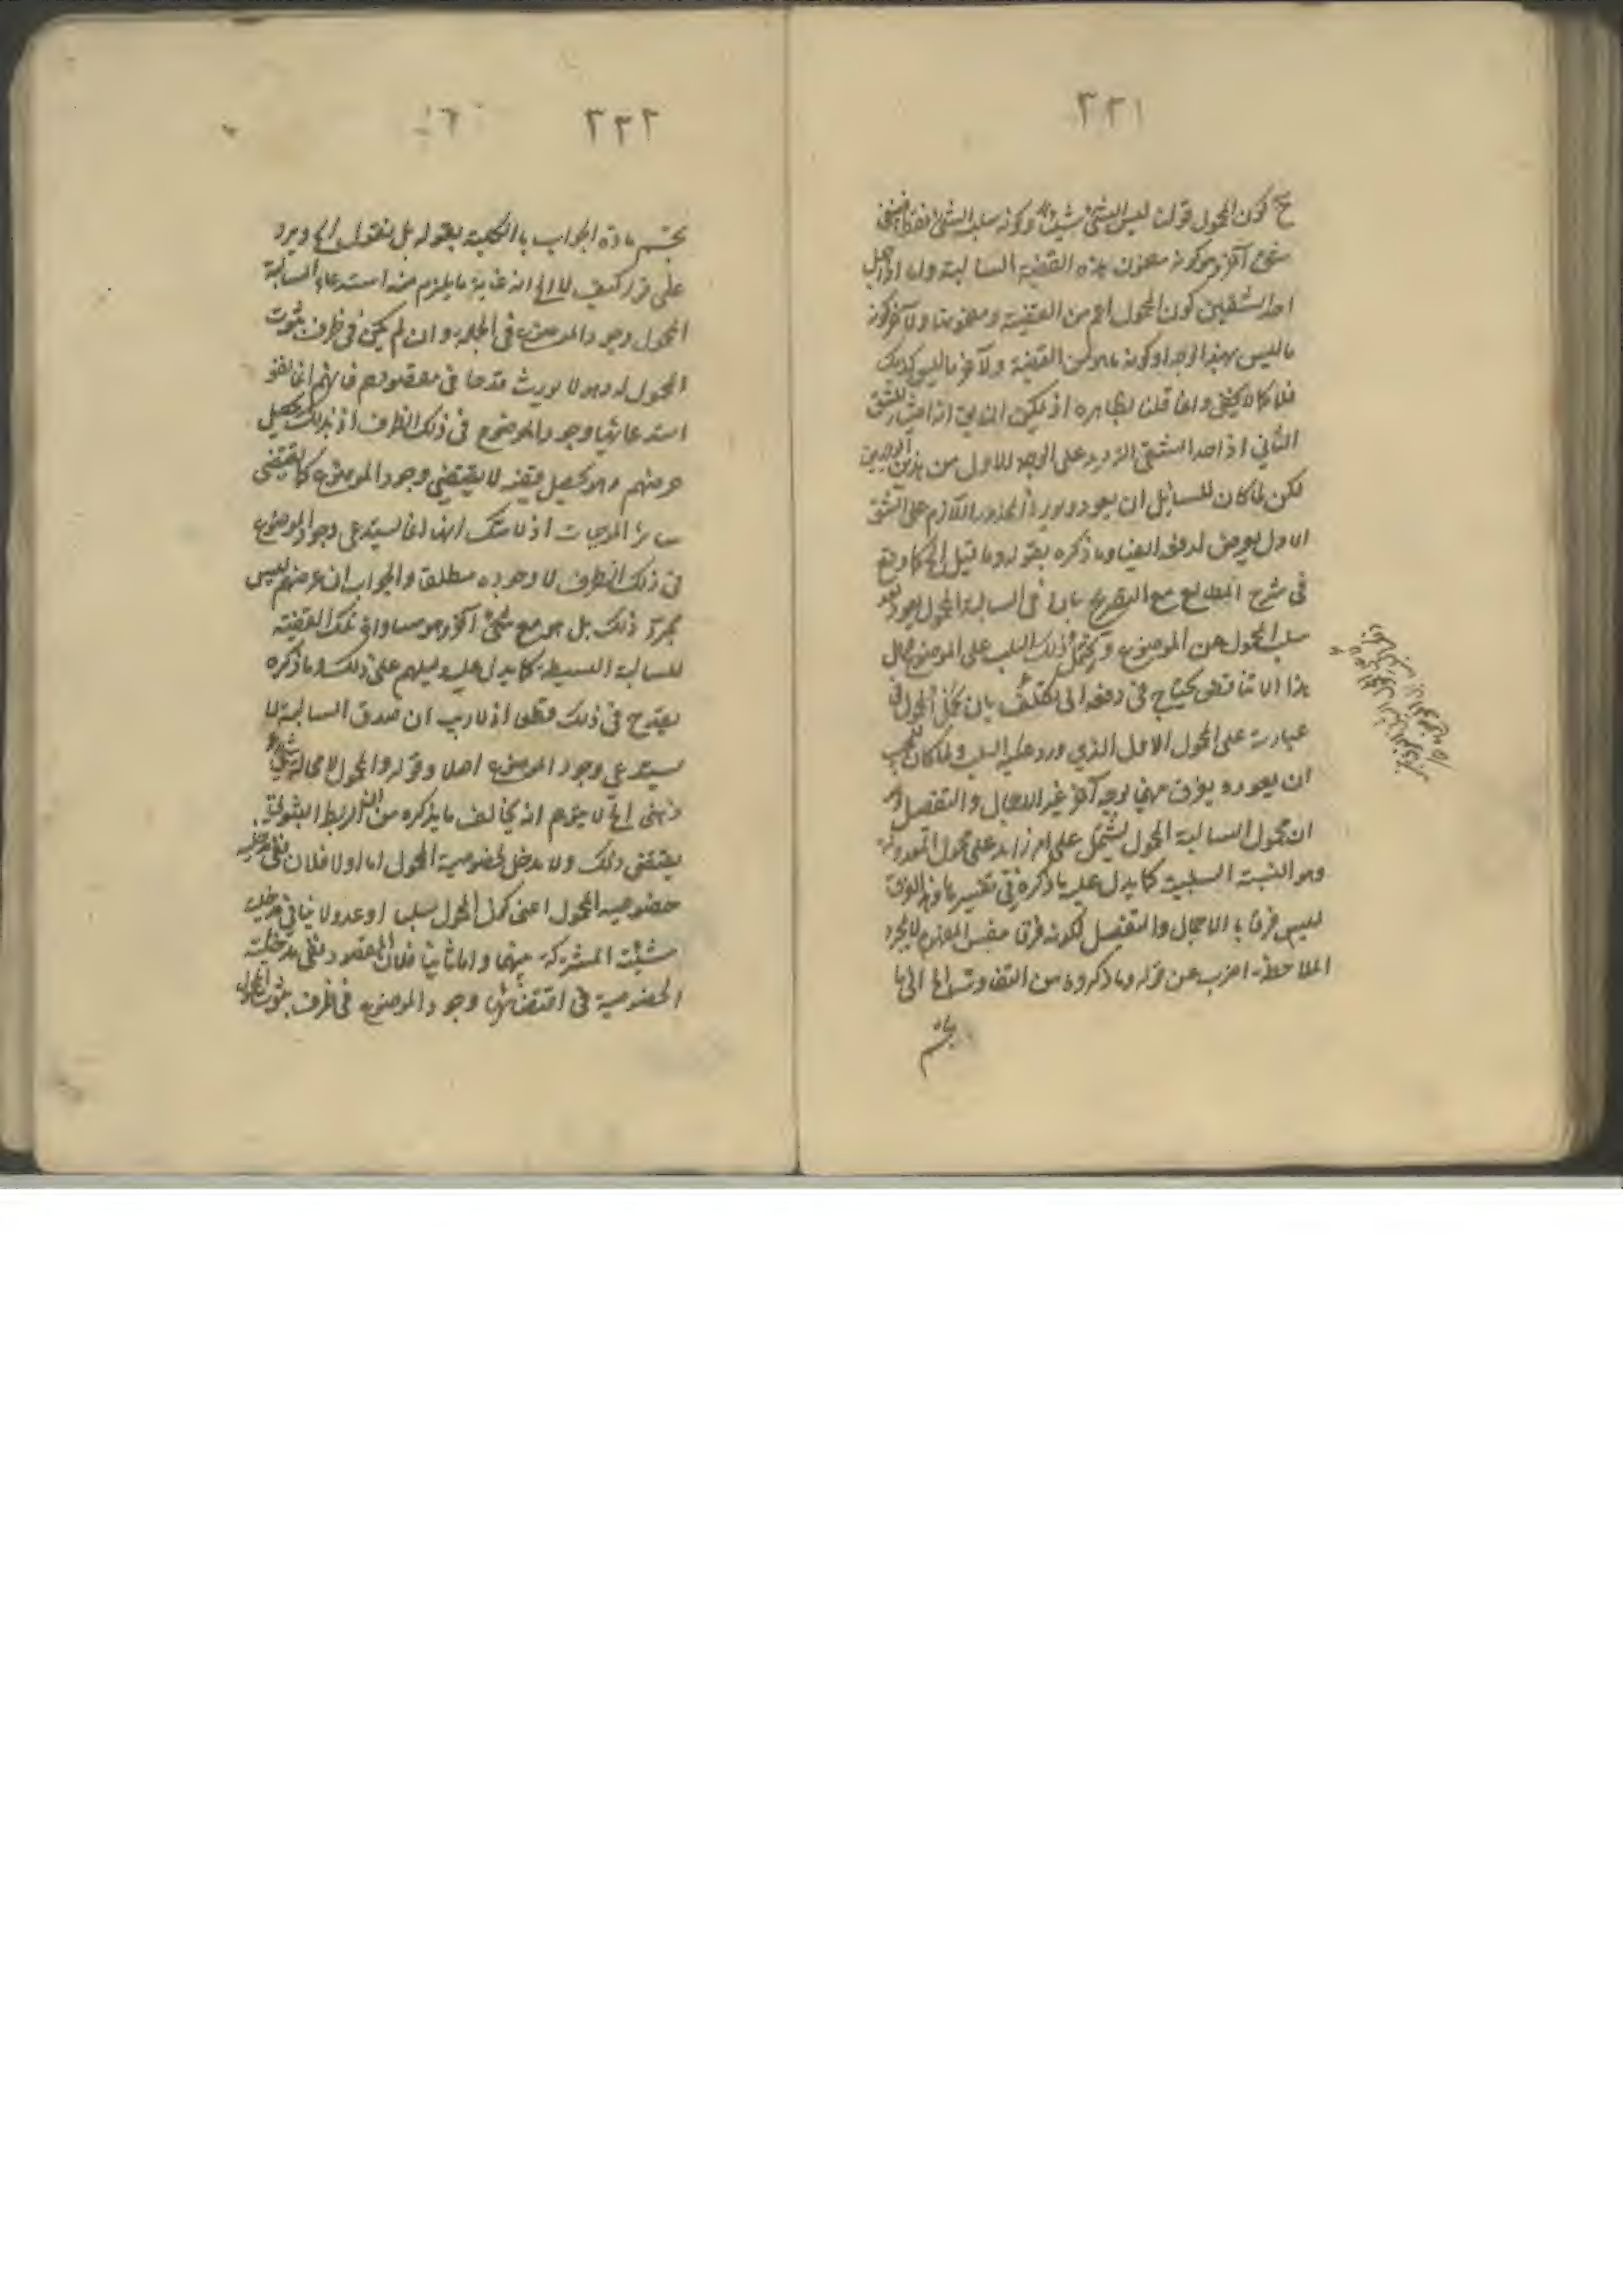 ٣٣١
ح كون المحمول قولنا ليس الشيء شيئا وكونه سلب الشيء
شيء آخر هو كونه مضمون هذه القضية السالبة
احد الشقين كون المحمول اعم من القضية ومضمونها والآخر كونه
ما ليس بهذا الوجه او كونه ما هو من القضية والآخر ما ليس كذلك
فلا كلام وانما قلنا بظاهره اذ يمكن
الثاني اذ احد الشقين الترديد على الوجه الاول من هذين الوجهين
لكن لما كان للسائل ان يعود ويورد المحذور اللازم على الشق
الاول تعرض لدفعه ايضا وما ذكره بقوله وما قيل الخ كما وقع
في شرح المطالع مع التصريح بان في السالبة المحمول يعود
سلب المحمول عن الموضوع ويحمل ذلك السلب على الموضوع
هذا التناقض يحتاج في دفعه الى تكلف بان يحمل المحمول في
عبارته على المحمول الاول الذي ورد عليه السلب ولما كان
ان يعود ويفرق بينهما بوجه آخر غير الاجمال والتفصيل
ان محمول السالبة المحمول يشتمل على امر زائد على محمول المعدولة
وهو النسبة السلبية كما يدل عليه ما ذكره في تفسيرها وهذا الفرق
ليس فرقا بالاجمال والتفصيل لكونه فرقا بنفس المفهوم لا بمجرد
الملاحظة اضرب عن قوله وما ذكروه من التفاوت الخ الى ما
يحسم
٣٣٢
يحسم مادة الجواب بالكلية بقوله بل نقول الخ ويرد
على قوله كيف لا الخ ان غاية ما يلزم منه استدعاء السالبة
المحمول وجود الموضوع في الجملة وان لم يكن في ظرف ثبوت
المحمول له وهو لا يورث قدحا في مقصودهم فانهم انما نفوا
استدعائها وجود الموضوع في ذلك الظرف اذ بذلك يحصل
غرضهم وهو تحصيل قضية لا يقتضي وجود الموضوع كما يقتضي
سائر الموجبات اذ لا شك انها انما يستدعي وجود الموضوع
في ذلك الظرف لا وجوده مطلقا والجواب ان غرضهم ليس
مجرد ذلك بل هو مع شيء آخر وهو مساواة تلك القضية
للسالبة البسيطة كما يدل عليه دليلهم على ذلك وما ذكره
يقدح في ذلك قطعا اذ لا ريب ان صدق السالبة لا
يستدعي وجود الموضوع اصلا وقوله والمحمول لا محالة شيء
ذهني الخ لا يتوهم انه يخالف ما يذكره من ان الربط الثبوتي
يقتضي ذلك ولا مدخل لخصوصية المحمول اما اولا فلان نفي مدخلية
خصوصية المحمول اعني كون المحمول سلبا او عدولا لا ينافي مدخلية
شيئيته المشتركة بينهما واما ثانيا فلان المقصود نفي مدخلية
الخصوصية في اقتضائها وجود الموضوع في ظرف ثبوت المحمول